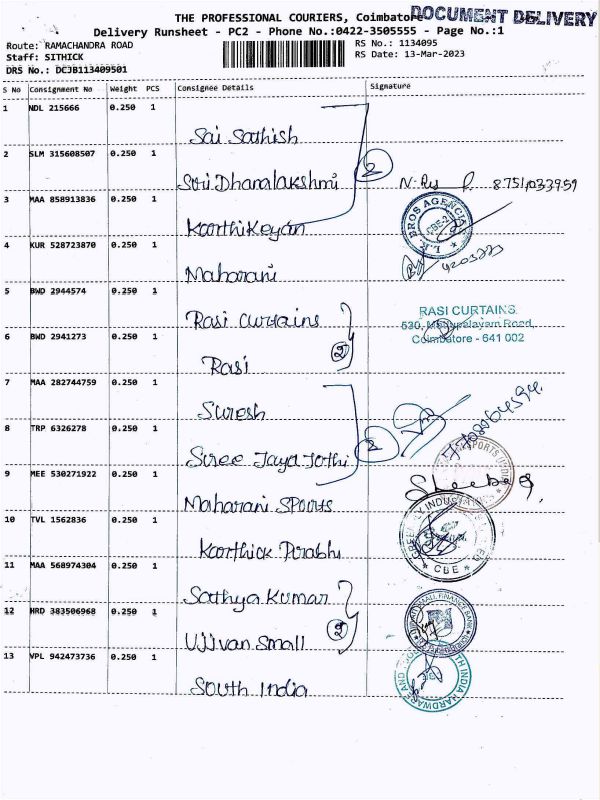 DOCUMENT DELIVERY
THE PROFESSIONAL COURIERS, Coimbatore
Delivery Runsheet - PC2 - Phone No.:0422-3505555 - Page No.:1
Route: RAMACHANDRA ROAD
Staff: SITHICK
DRS No.: DCJB113409501
RS No.: 1134095
RS Date: 13-Mar-2023
S No Consignment No Weight PCS Consignee Details Signature
1 NDL 215666 0.250 1
Sai Sathish
2 SLM 315608507 0.250 1
2
Sri Dhanalakshmi
8751033959
3 MAA 858913836 0.250 1
Karthikeyan
L.K BROS AGENCIES
CBE-2
4 KUR 528723870 0.250 1
Maharani
5 BWD 2944574 0.250 1
Rasi Curtains
RASI CURTAINS
530, Mettupalayam Road,
Coimbatore - 641 002
6 BWD 2941273 0.250 1
2
Rasi
7 MAA 282744759 0.250 1
Suresh
8 TRP 6326278 0.250 1
2
Sree Jaya Jothi
9 MEE 530271922 0.250 1
Maharani Sports
10 TVL 1562836 0.250 1
Karthick Prabhu
CBE
11 MAA 568974304 0.250 1
Sathya Kumar
12 HRD 383506968 0.250 1
2
Ujjivan Small
13 VPL 942473736 0.250 1
South India